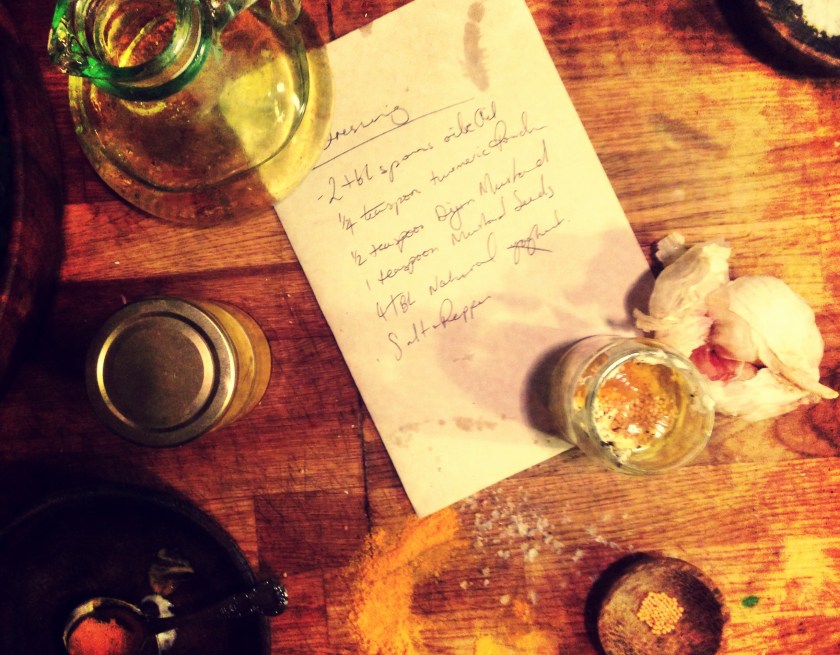 Dressing
- 2 tbl spoons olive Oil
1/4 teaspoon turmeric Powder
1/2 teaspoon Dijon Mustard
1 teaspoon Mustard Seeds
4 TBL Natural yoghurt.
Salt & Pepper